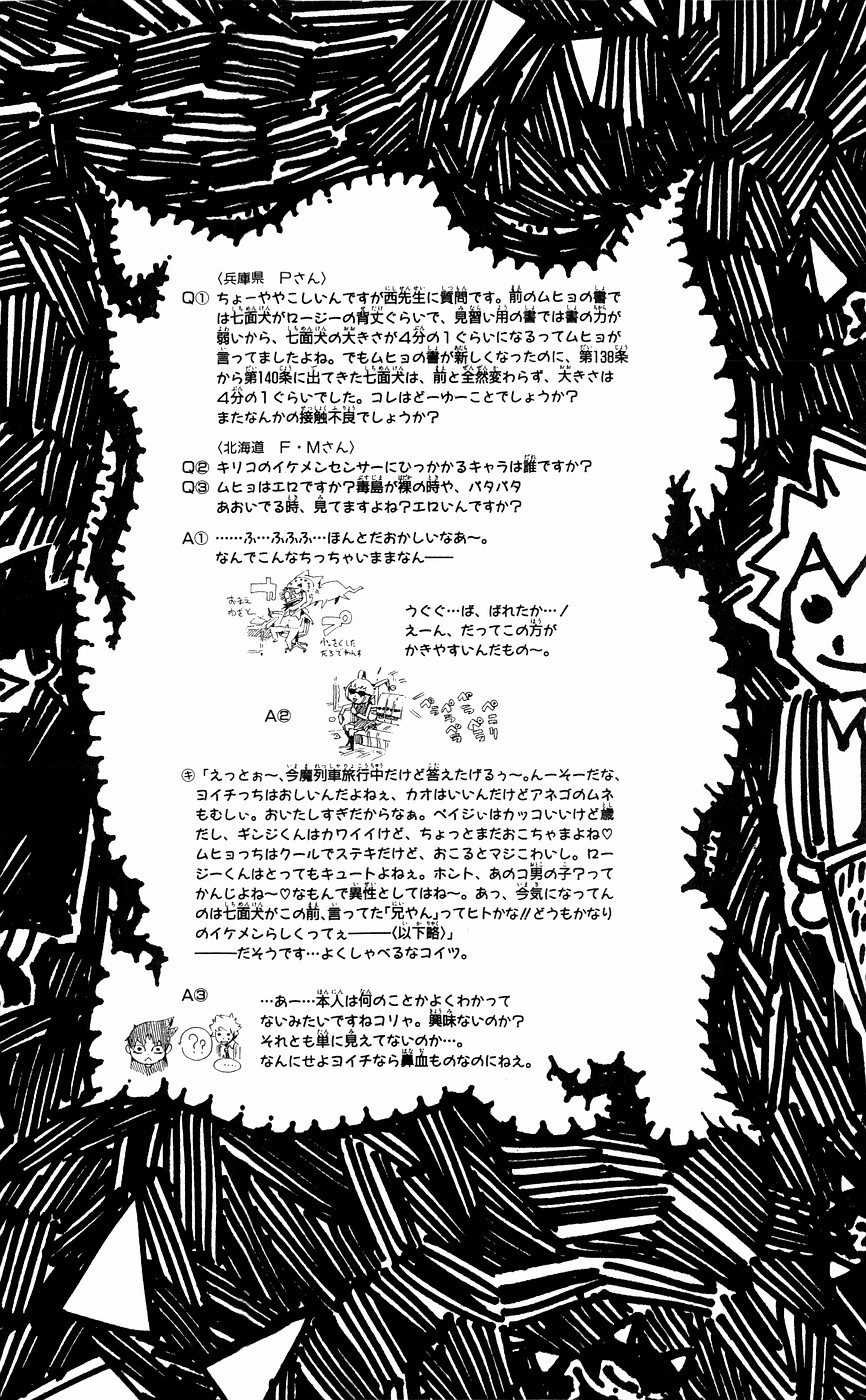 〈兵庫県　Pさん〉
Q① ちょーややこしいんですが西先生に質問です。前のムヒョの書で
は七面犬がロージーの背丈ぐらいで、見習い用の書では書の力が
弱いから、七面犬の大きさが4分の1ぐらいになるってムヒョが
言ってましたよね。でもムヒョの書が新しくなったのに、第138条
から第140条に出てきた七面犬は、前と全然変わらず、大きさは
4分の1ぐらいでした。コレはどーゆーことでしょうか？
またなんかの接触不良でしょうか？
〈北海道　F・Mさん〉
Q② キリコのイケメンセンサーにひっかかるキャラは誰ですか？
Q③ ムヒョはエロですか？毒島が裸の時や、パタパタ
あおいでる時、見てますよね？エロいんですか？
A① ……ふ…ふふふ…ほんとだおかしいなあ〜。
なんでこんなちっちゃいままなん――
おまえ
わざと
小さくした
だろてめえ
うぐぐ…ば、ばれたか…！
えーん、だってこの方が
かきやすいんだもの〜。
A②
ペラ
ペラ
ペラ
ペラ
㋖「えっとぉ〜、今魔列車旅行中だけど答えたげるぅ〜。んーそーだな、
ヨイチっちはおしいんだよねぇ、カオはいいんだけどアネゴのムネ
もむしぃ。おいたしすぎだからなぁ。ペイジぃはカッコいいけど歳
だし、ギンジくんはカワイイけど、ちょっとまだおこちゃまよね♡
ムヒョっちはクールでステキだけど、おこるとマジこわいし。ロー
ジーくんはとってもキュートよねぇ。ホント、あのコ男の子？って
かんじよね〜♡なもんで異性としてはね〜。あっ、今気になってん
のは七面犬がこの前、言ってた「兄やん」ってヒトかな!!どうもかなり
のイケメンらしくってぇ―――〈以下略〉」
―――だそうです…よくしゃべるなコイツ。
A③ …あー…本人は何のことかよくわかって
ないみたいですねコリャ。興味ないのか？
それとも単に見えてないのか…。
なんにせよヨイチなら鼻血ものなのにねえ。
??